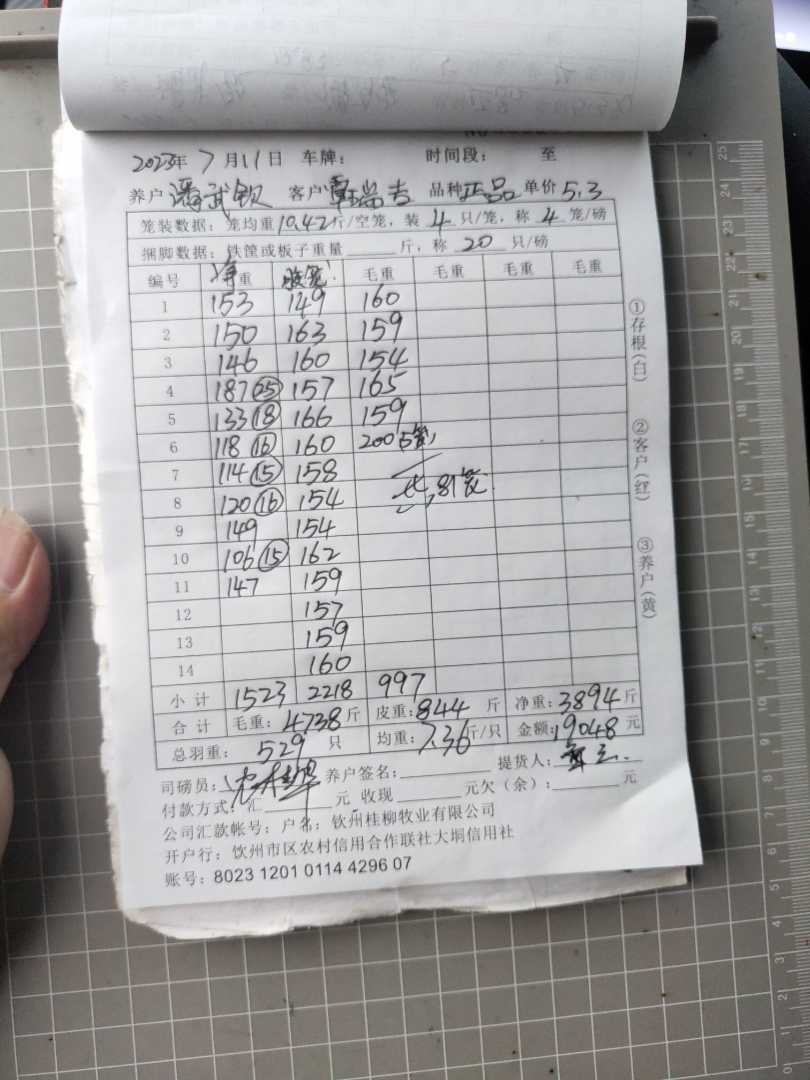 2023年 7月11日 车牌: 时间段: 至
养户 潘武钦 客户 品种 正品 单价 5.3
笼装数据: 笼均重10.42斤/空笼, 装 4 只/笼, 称 4 笼/磅
捆脚数据: 铁筐或板子重量 斤, 称 20 只/磅
编号 净重 毛重 毛重 毛重 毛重
1 153 149 160
2 150 163 159
3 146 160 154
4 187 25 157 165
5 133 18 166 159
6 118 16 160 200 5笼
7 114 15 158
8 120 16 154 共81笼
9 149 154
10 106 15 162
11 147 159
12 157
13 159
14 160
小计 1523 2218 997
合计 毛重: 4738 斤 皮重: 844 斤 净重: 3894 斤
总羽重: 529 只 均重: 7.36斤/只 金额: 19048 元
司磅员: 养户签名: 提货人:
付款方式: 汇 元 收现 元欠(余): 元
公司汇款帐号: 户名: 钦州桂柳牧业有限公司
开户行: 钦州市区农村信用合作联社大垌信用社
账号: 8023 1201 0114 4296 07
①存根(白)
②客户(红)
③养户(黄)